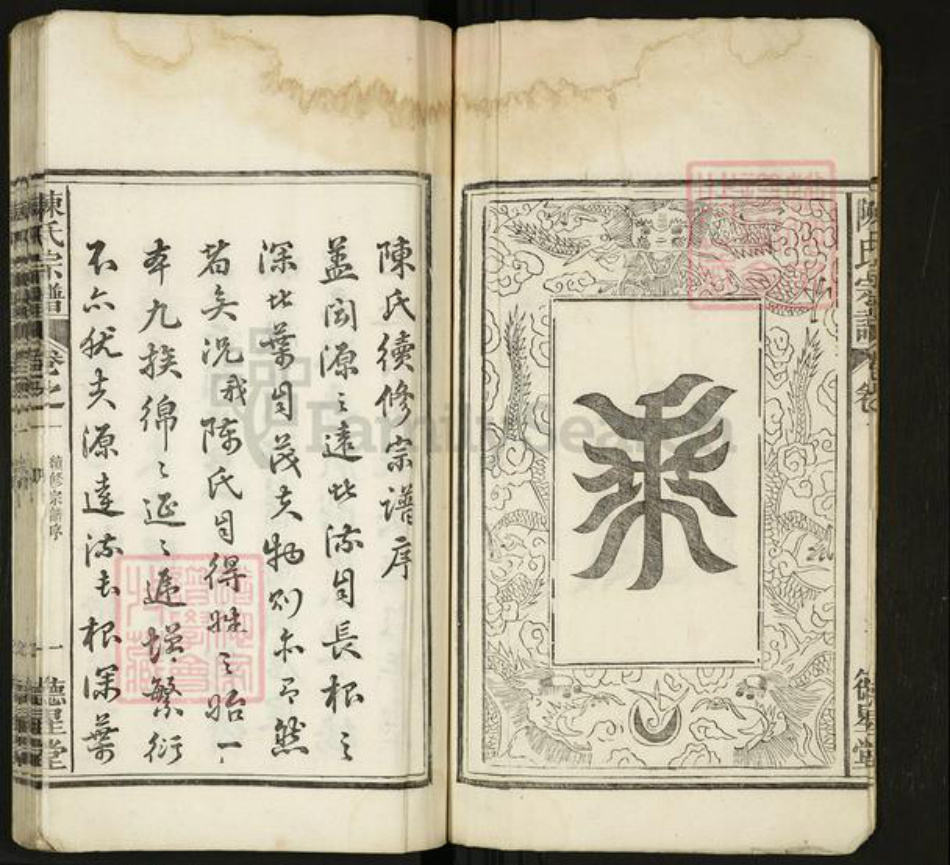 陳氏宗譜
卷
德星堂
陳氏續修宗譜序
蓋聞源之遠者流自長根之
深者葉自茂夫物則亦有然
者矣況我陈氏自得姓之始一
本九族綿〻延〻遞增繁衍
不亦猶夫源遠流長根深葉
陳氏宗譜
卷之一
續修宗譜序
一
德星堂
FamilySearch